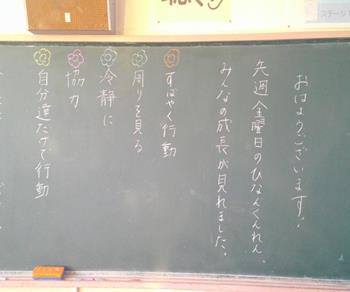 おはようございます!
先週金曜日のひなんくんれん。
みんなの成長が見れました。
すばやく行動
周りを見る
冷静に
協力
自分達だけで行動